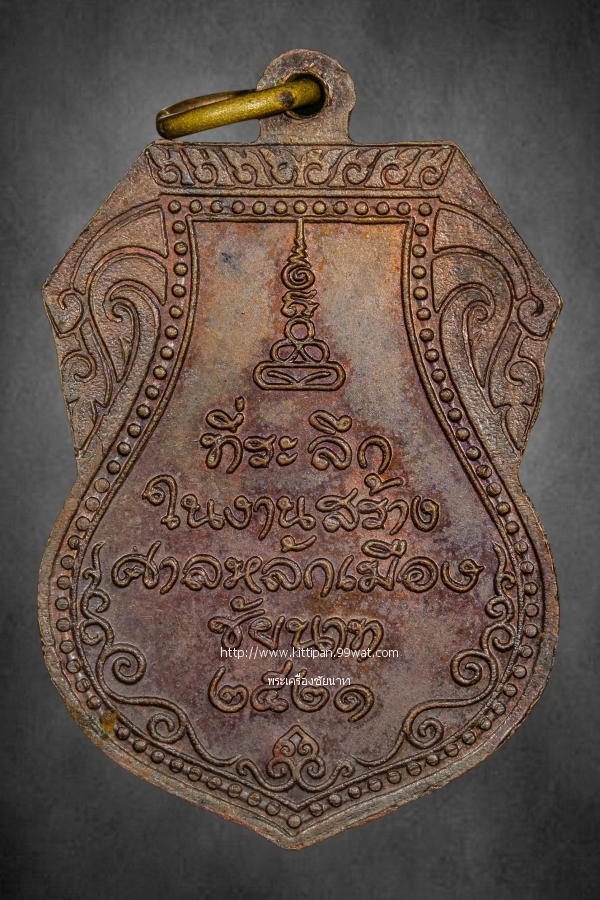 ที่ระลึก
ในงานสร้าง
ศาลหลักเมือง
ชัยนาท
http://www.kittipan.99wat.com
พระเครื่องชัยนาท
๒๕๒๑